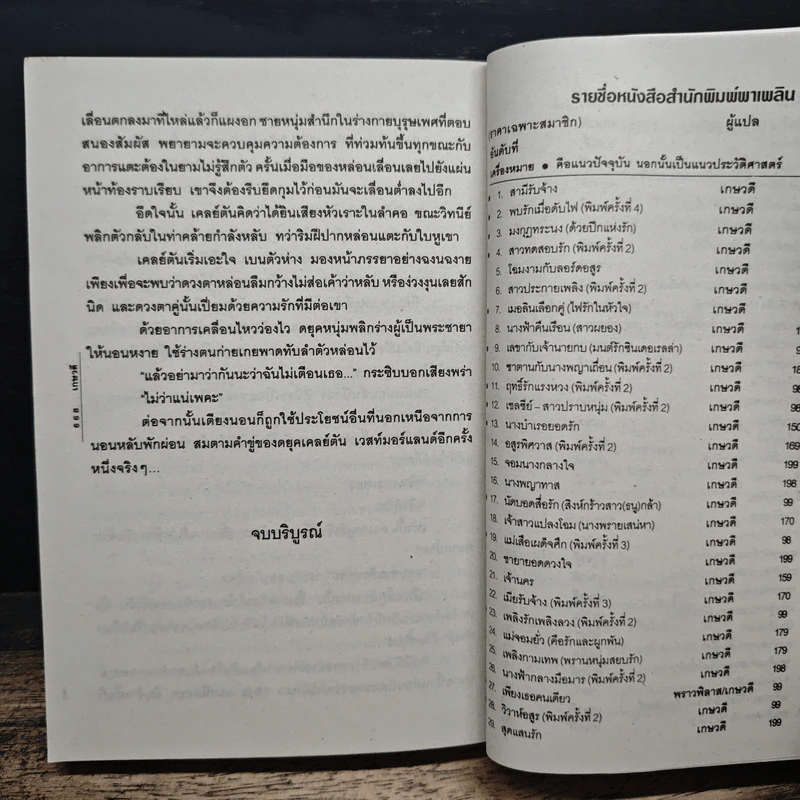 เลื่อนตกลงมาที่ไหล่แล้วก็แผงอก ชายหนุ่มสำนึกในร่างกายบุรุษเพศที่ตอบ
สนองสัมผัส พยายามจะควบคุมความต้องการ ที่ท่วมท้นขึ้นทุกขณะกับ
อาการแตะต้องในยามไม่รู้สึกตัว ครั้นเมื่อมือของหล่อนเลื่อนเลยไปยังแผ่น
หน้าท้องราบเรียบ เขาจึงต้องรีบยึดกุมไว้ก่อนมันจะเลื่อนต่ำลงไปอีก
อึดใจนั้น เคลย์ตันคิดว่าได้ยินเสียงหัวเราะในลำคอ ขณะวิทนีย์
พลิกตัวกลับในท่าคล้ายกำลังหลับ ทว่าริมฝีปากหล่อนแตะกับใบหูเขา
เคลย์ตันเริ่มเอะใจ เบนตัวห่าง มองหน้าภรรยาอย่างฉงนฉงาย
เพียงเพื่อจะพบว่าดวงตาหล่อนลืมกว้างไม่ส่อเค้าว่าหลับ หรือง่วงงุนเลยสัก
นิด และดวงตาคู่นั้นเปี่ยมด้วยความรักที่มีต่อเขา
ด้วยอาการเคลื่อนไหวว่องไว ดยุคหนุ่มพลิกร่างผู้เป็นพระชายา
ให้นอนหงาย ใช้ร่างตนก่ายเกยพาดทับลำตัวหล่อนไว้
“แล้วอย่ามาว่ากันนะว่าฉันไม่เตือนเธอ...” กระซิบบอกเสียงพร่า
“ไม่ว่าแน่เพคะ”
ต่อจากนั้นเตียงนอนก็ถูกใช้ประโยชน์อื่นที่นอกเหนือจากการ
นอนหลับพักผ่อน สมตามคำขู่ของดยุคเคลย์ตัน เวสท์มอร์แลนด์อีกครั้ง
หนึ่งจริงๆ...
จบบริบูรณ์
668 เกษวดี
รายชื่อหนังสือสำนักพิมพ์พาเพลิน
(ราคาเฉพาะสมาชิก) ผู้แปล
อันดับที่
เครื่องหมาย • คือแนวปัจจุบัน นอกนั้นเป็นแนวประวัติศาสตร์
• 1. สามีรับจ้าง เกษวดี
• 2. พบรักเมื่อดับไฟ (พิมพ์ครั้งที่ 4) เกษวดี
• 3. มงกุฎทระนง (ด้วยปีกแห่งรัก) เกษวดี
• 4. สาวทดสอบรัก (พิมพ์ครั้งที่ 2) เกษวดี
5. โฉมงามกับลอร์ดอสูร เกษวดี
6. สาวประกายเพลิง (พิมพ์ครั้งที่ 2) เกษวดี
• 7. เมอลินเลือกคู่ (ไฟรักในหัวใจ) เกษวดี
8. นางฟ้าคืนเรือน (สาวผยอง) เกษวดี
• 9. เลขากับเจ้านายกบ (มนต์รักซินเดอเรลล่า) เกษวดี
10. ซาตานกับนางพญาเถื่อน (พิมพ์ครั้งที่ 2) เกษวดี
• 11. ฤทธิ์รักแรงหวง (พิมพ์ครั้งที่ 2) เกษวดี
• 12. เชลซีย์ – สาวปราบหนุ่ม (พิมพ์ครั้งที่ 2) เกษวดี
• 13. นางบำเรอยอดรัก เกษวดี 150
14. อสูรพิศวาส (พิมพ์ครั้งที่ 2) เกษวดี 169
15. จอมนางกลางใจ เกษวดี 199
16. นางพญาทาส เกษวดี 198
• 17. นัดบอดสื่อรัก (สิงห์กร้าวสาว(ธนู)กล้า) เกษวดี 99
18. เจ้าสาวแปลงโฉม (นางพรายเสน่หา) เกษวดี 170
• 19. แม่เสือเผด็จศึก (พิมพ์ครั้งที่ 3) เกษวดี 98
20. ชายายอดดวงใจ เกษวดี 199
21. เจ้านคร เกษวดี 159
22. เมียรับจ้าง (พิมพ์ครั้งที่ 3) เกษวดี 170
• 23. เพลิงรักเพลิงลวง (พิมพ์ครั้งที่ 2) เกษวดี 99
24. แม่จอมยั่ว (คือรักและผูกพัน) เกษวดี 179
25. เพลิงกามเทพ (พรานหนุ่มสยบรัก) เกษวดี 179
26. นางฟ้ากลางมือมาร (พิมพ์ครั้งที่ 2) เกษวดี 198
• 27. เพียงเธอคนเดียว พราวพิลาส/เกษวดี 99
• 28. วิวาห์อสูร (พิมพ์ครั้งที่ 2) เกษวดี 99
29. สุดแสนรัก เกษวดี 199